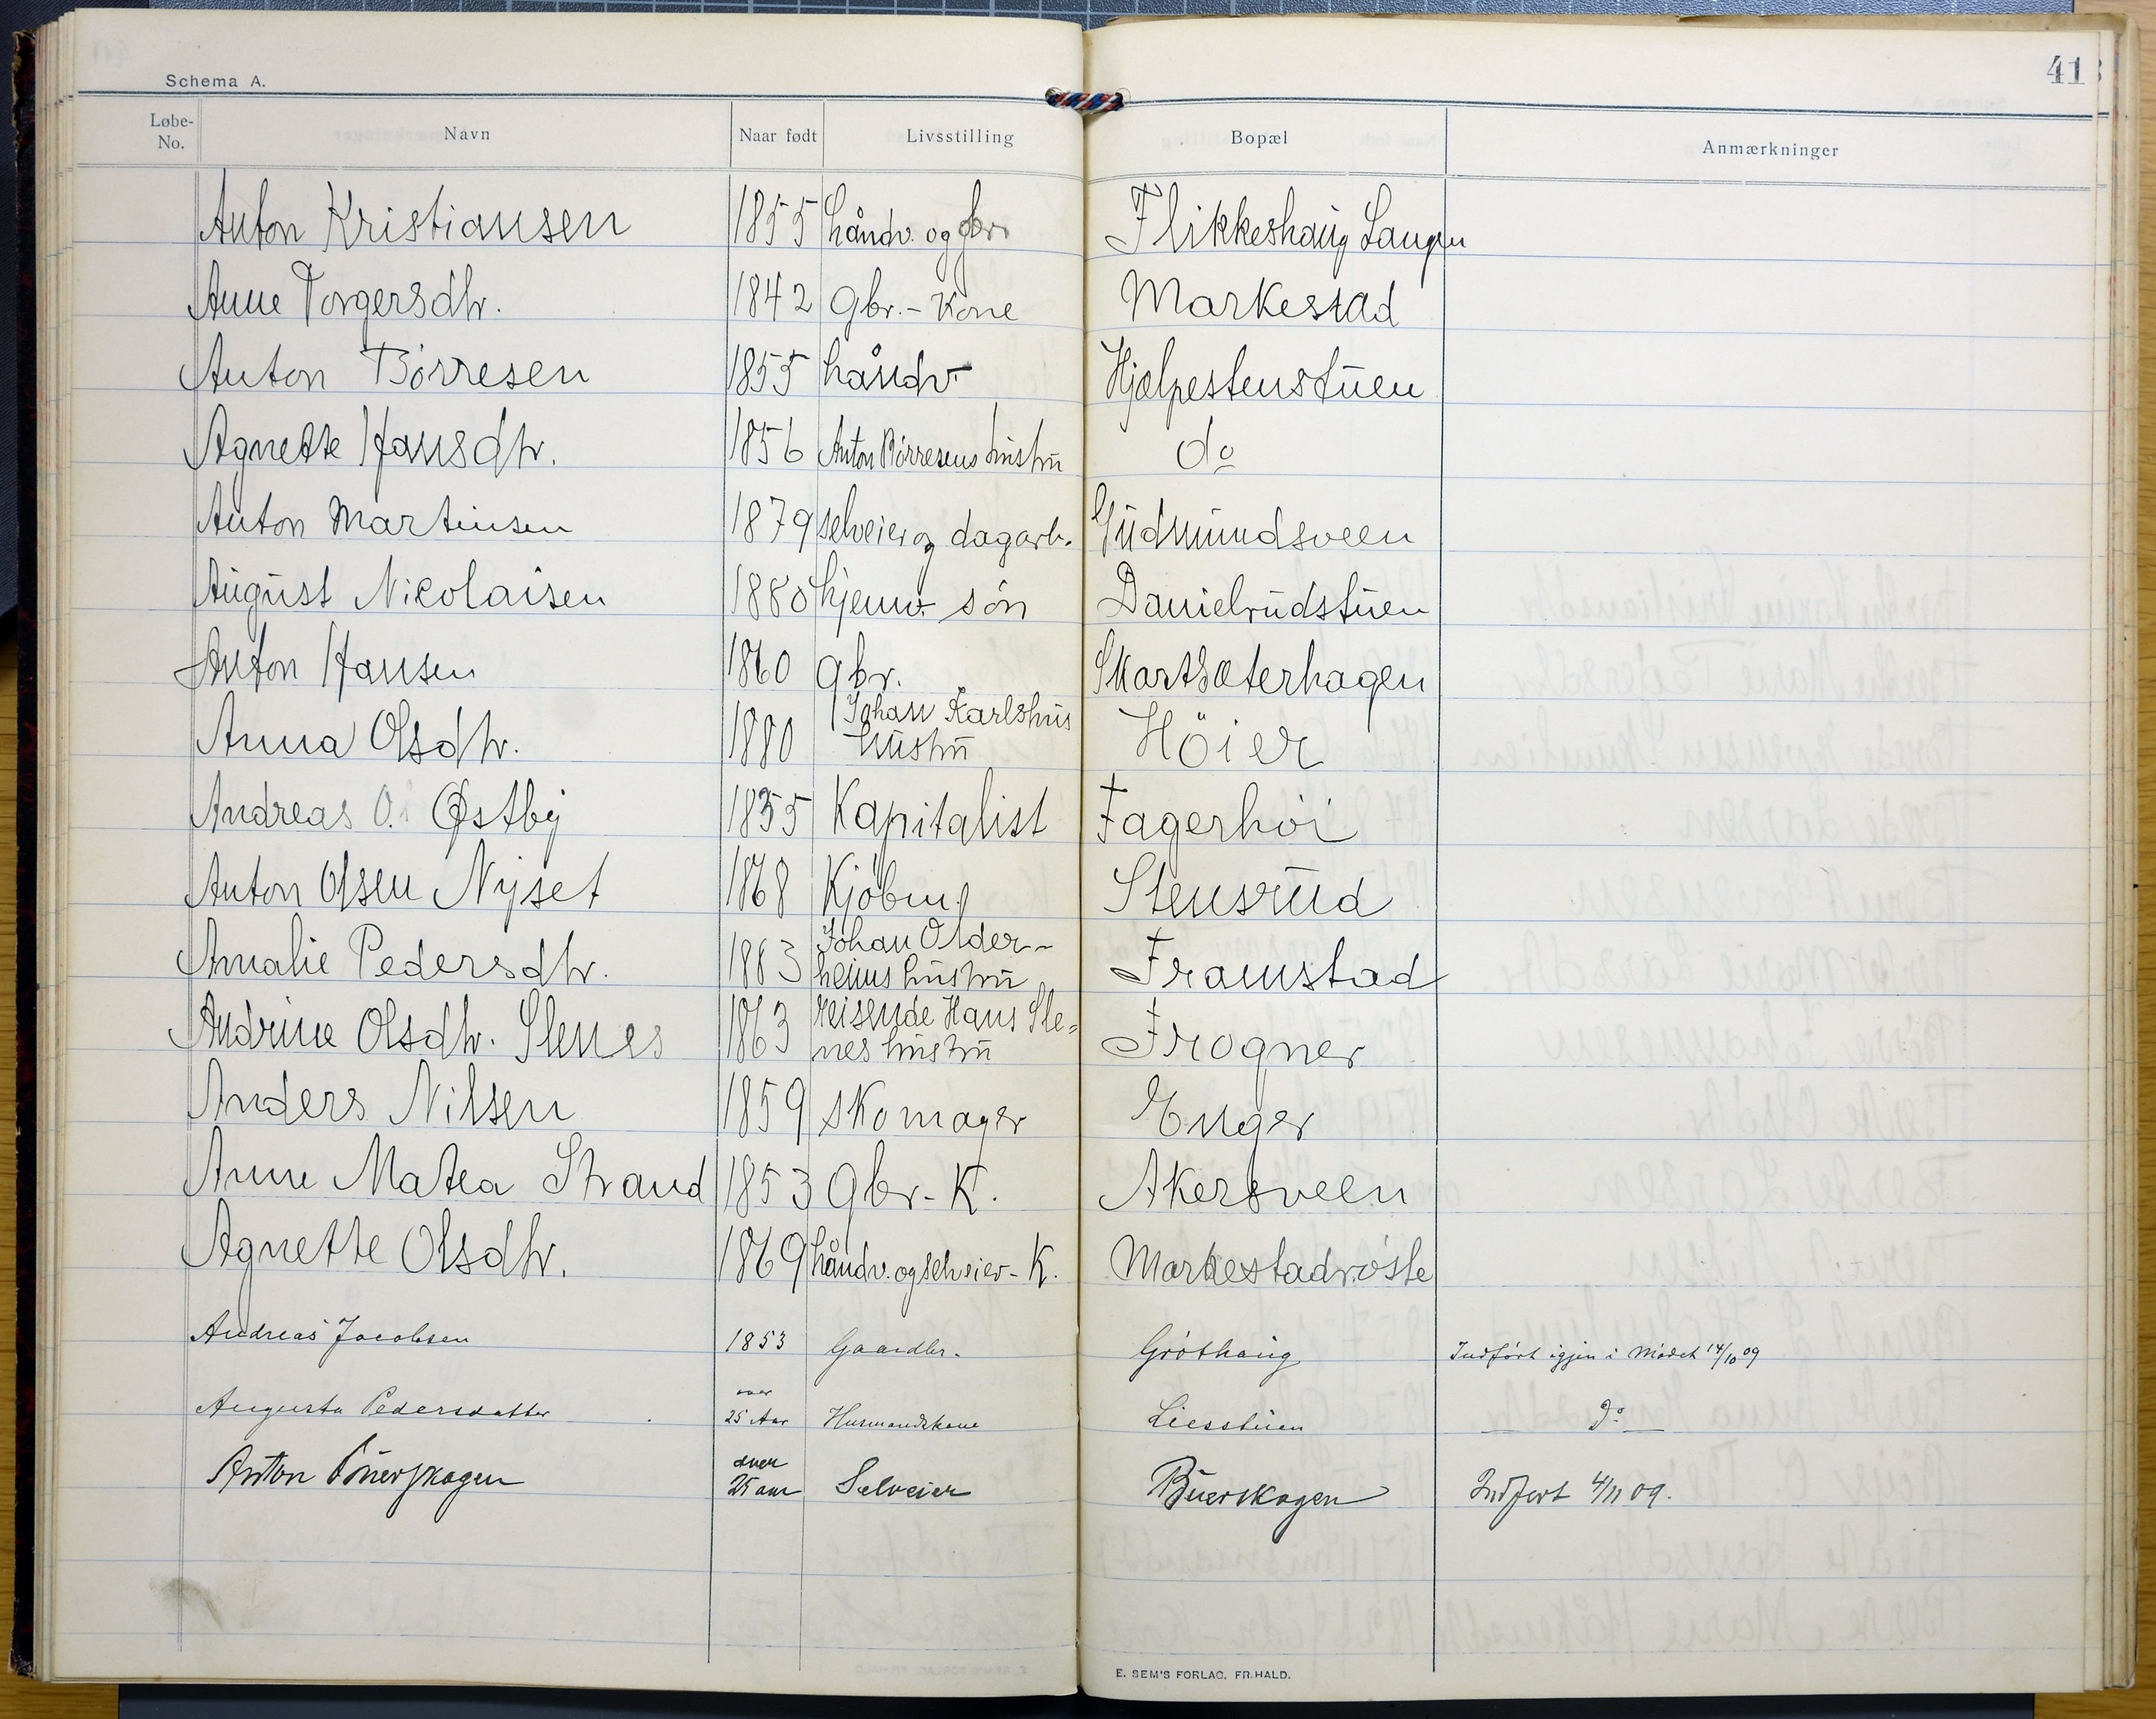 41
Schema A.
Løbe-No. Navn Naar født Livsstilling Bopæl Anmærkninger
Anton Kristiansen 1855 håndv. og gbr. Flikkeshaug Laugen
Anne Torgersdtr. 1842 Gbr.-Kone Markestad
Anton Börresen 1855 håndv. Hjælpestenstuen
Agnette Hansdtr. 1856 Anton Börresens hustru do
Anton Martinsen 1879 selveier og dagarb. Gudmundsveen
August Nicolaisen 1880 hjemv. sön Danielrudstuen
Anton Hansen 1860 gbr. Skartsæterhagen
Anna Olsdtr. 1880 Johan Karlshus hustru Höier
Andreas O. Østby 1855 Kapitalist Fagerhöi
Anton Olsen Nyset 1868 Kjöbm. Stensrud
Amalie Pedersdtr. 1863 Johan Older-heims hustru Framstad
Andrine Olsdtr. Stenes 1863 reisende Hans Ste=nes hustru Frogner
Anders Nilsen 1859 skomager Enger
Anne Matea Strand 1853 Gbr-K. Akersveen
Agnette Olsdtr. 1869 håndv. og selveier-K. Markestadröste
Andreas Jacobsen 1853 Gaardbr. Gröthaug Indført igjen i Mödet 14/10 09
Augusta Pedersdatter over 25 Aar Husmandskone Liesstuen Do
Anton Buerskogen over 25 aar Selveier Buerskogen Indført 4/11 09.
E. SEM'S FORLAG, FR.HALD.